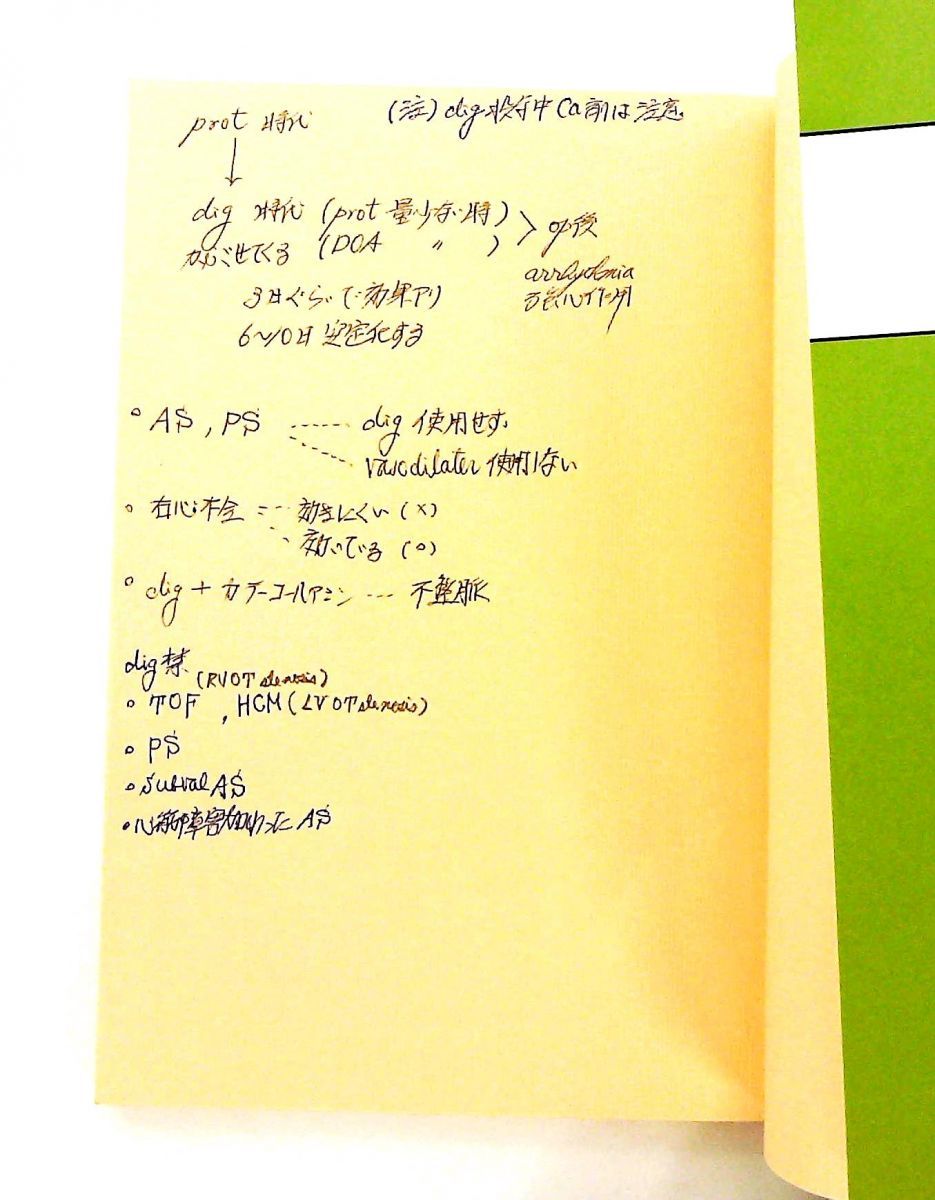 prot 時代
(注) dig 投与中 Ca剤は注意
↓
dig 時代 (prot 量少ない時)
かぶせてくる (DOA 〃 ) > op後
3日ぐらいで効果アリ
6〜10日 安定化する
• AS, PS ----- dig 使用せず
----- vasodilater 使用しない
• 右心不全 --- 効きにくい (×)
--- 効いている (○)
• dig + カテコールアミン --- 不整脈
dig 禁
(RVOT stenosis)
• TOF , HCM (LVOT stenosis)
• PS
• subval AS
• 心筋障害加わった AS